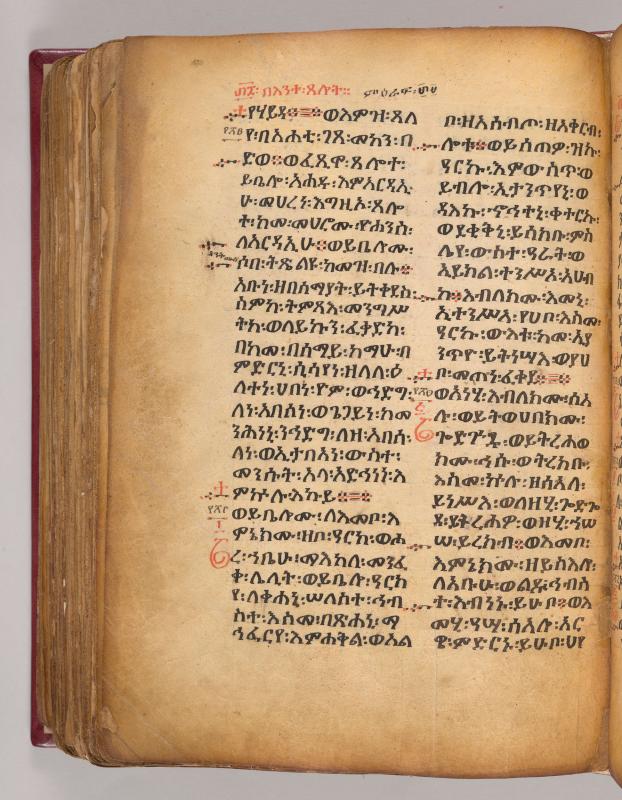 በእንተ፡ጸሎት።
የሃይዳ፨ወእምዝ፡ጸለ
የ፡በአሐቲ፡ገጸ፡መካን፡በ
ድወ፨ወፈጺሞ፡ጸሎተ፡
ይቤሎ፡አሐዱ፡እምአርዳኢ
ሁ፡መሀረነ፡እግዚኦ፡ጸሎ
ተ፡ከመ፡መሀሮሙ፡ዮሐንስ፡
ለአርዳኢሁ፨ወይቤሎሙ፡
ሶበ፡ትጼልዩ፡ከመዝ፡በሉ፨
አቡነ፡ዘበሰማያት፡ይትቀደስ፡
ስምከ፡ትምጻእ፡መንግሥ
ትከ፡ወለይኩን፡ፈቃድከ፡
በከመ፡በሰማይ፡ከማሁ፡በ
ምድርኒ፡ሲሳየነ፡ዘለለ፡ዕ
ለትነ፡ሀበነ፡ዮም፡ወኅድግ፡
ለነ፡አበሳነ፡ወጌጋየነ፡ከመ
ንሕነኒ፡ንኅድግ፡ለዘ፡አበሰ፡
ለነ፡ወኢታብአነ፡ውስተ፡
መንሱት፡አላ፡አድኅነነ፡እ
ምኵሉ፡እኩይ፨
ወይቤሎሙ፡ለእመቦ፡እ
ምኔክሙ፡ዘቦ፡ዓርክ፡ወሐ
ረ፡ኀቤሁ፡ማእከለ፡መንፈ
ቀ፡ሌሊት፡ወይቤሎ፡ዓርክ
የ፡ለቀሐኒ፡ሠለስተ፡ኅብ
ስተ፡እስመ፡በጽሐኒ፡ማ
ኅፈርየ፡እምሐቅል፡ወአል
ቦ፡ዘአሰብጦ፡ዘአቀርብ፡
ሎቱ፨ወይሰጠዎ፡ዝኩ፡
ዓርኩ፡እምውስጥ፡ወ
ይብሎ፡ኢታንጥየኒ፡ወ
ዳእኩ፡ኆኅተኒ፡ቀተርኩ፡
ወደቂቅኒ፡ይሰክቡ፡ምስ
ሌየ፡ውስተ፡ዓራት፡ወ
ኢይክል፡ተንሥአ፡አሀብ
ከ፨እብለክሙ፡እመኒ፡
ኢተንሥአ፡የሀቦ፡እስመ፡
ዓርኩ፡ውእቱ፡ከመ፡ኢያ
ንጥዮ፡ይትነሣእ፡ወየሀ
ቦ፡መጠነ፡ፈቀደ፨
ወአነሂ፡እብለክሙ፡ሰአ
ሉ፡ወይትወሀበክሙ፡
ጐድጐዱ፡ወይትረሐወ
ክሙ፡ኅሡ፡ወትረክቡ፡
እስመ፡ኵሉ፡ዘሰአለ፡
ይነሥእ፡ወለዘሂ፡ጐድጐ
ደ፡ይትረሐዎ፡ወዘሂ፡ኀሠ
ሠ፡ይረክብ፨ወእመቦ፡
እምኔክሙ፡ዘይስእሎ፡
ለአቡሁ፡ወልዱ፡ኅብስ
ተ፡እብንኑ፡ይሁቦ፨ወእ
መሂ፡ዓሣ፡ሰአሎ፡አር
ዌ፡ምድርኑ፡ይሁቦ፡ህየ